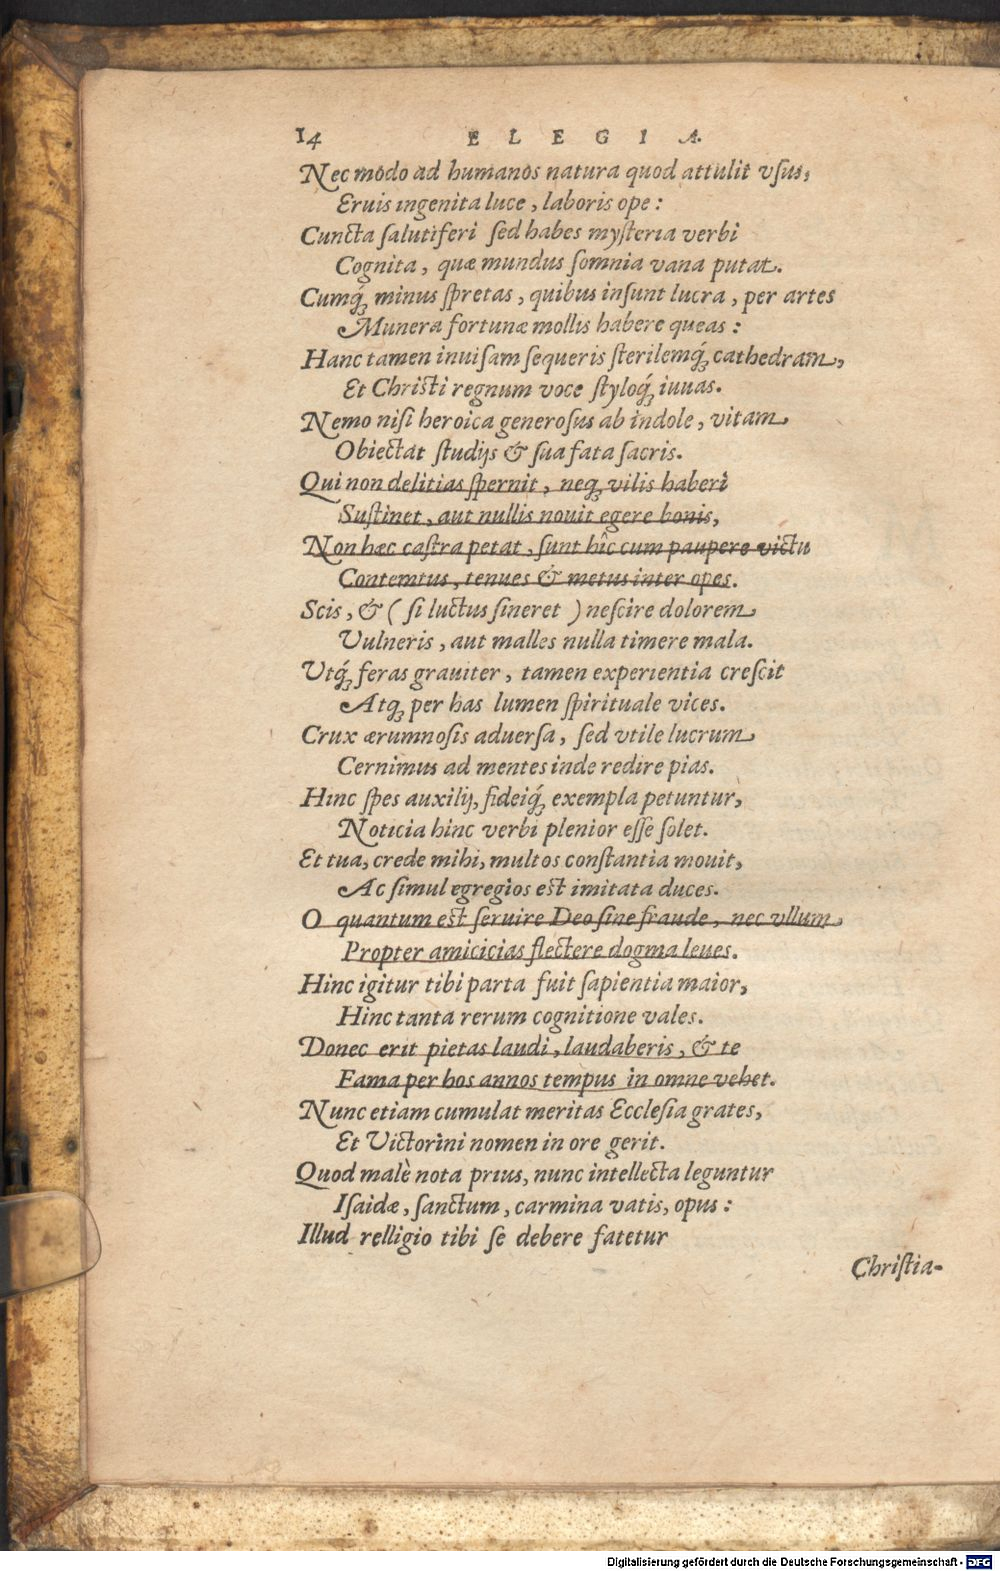 14 ELEGIA.
Nec modo ad humanos natura quod attulit vſus,
Eruis ingenita luce, laboris ope:
Cuncta ſalutiferi ſed habes myſteria verbi
Cognita, quæ mundus ſomnia vana putat.
Cumq́ꝫ minus ſpretas, quibus inſunt lucra, per artes
Munera fortunæ mollis habere queas:
Hanc tamen inuiſam ſequeris ſterilemq́ꝫ cathedram,
Et Chriſti regnum voce ſtyloq́ꝫ iuuas.
Nemo niſi heroica generoſus ab indole, vitam
Obiectat ſtudijs & ſua fata ſacris.
Qui non delitias ſpernit, neqꝫ vilis haberi
Suſtinet, aut nullis nouit egere bonis,
Non hæc caſtra petat, ſunt hîc cum paupere victu
Contemtus, tenues & metus inter opes.
Scis, & (ſi luctus ſineret) neſcire dolorem
Vulneris, aut malles nulla timere mala.
Utq́ꝫ feras grauiter, tamen experientia creſcit
Atqꝫ per has lumen ſpirituale vices.
Crux ærumnoſis aduerſa, ſed vtile lucrum
Cernimus ad mentes inde redire pias.
Hinc ſpes auxilij, fideiq́ꝫ exempla petuntur,
Noticia hinc verbi plenior eſſe ſolet.
Et tua, crede mihi, multos conſtantia mouit,
Ac ſimul egregios eſt imitata duces.
O quantum eſt ſeruire Deo ſine fraude, nec vllum
Propter amicicias flectere dogma leues.
Hinc igitur tibi parta fuit ſapientia maior,
Hinc tanta rerum cognitione vales.
Donec erit pietas laudi, laudaberis, & te
Fama per hos annos tempus in omne vehet.
Nunc etiam cumulat meritas Eccleſia grates,
Et Victorini nomen in ore gerit.
Quod malè nota prius, nunc intellecta leguntur
Iſaidæ, ſanctum, carmina vatis, opus:
Illud relligio tibi ſe debere fatetur
Chriſtia-
Digitalisierung gefördert durch die Deutsche Forschungsgemeinschaft - DFG